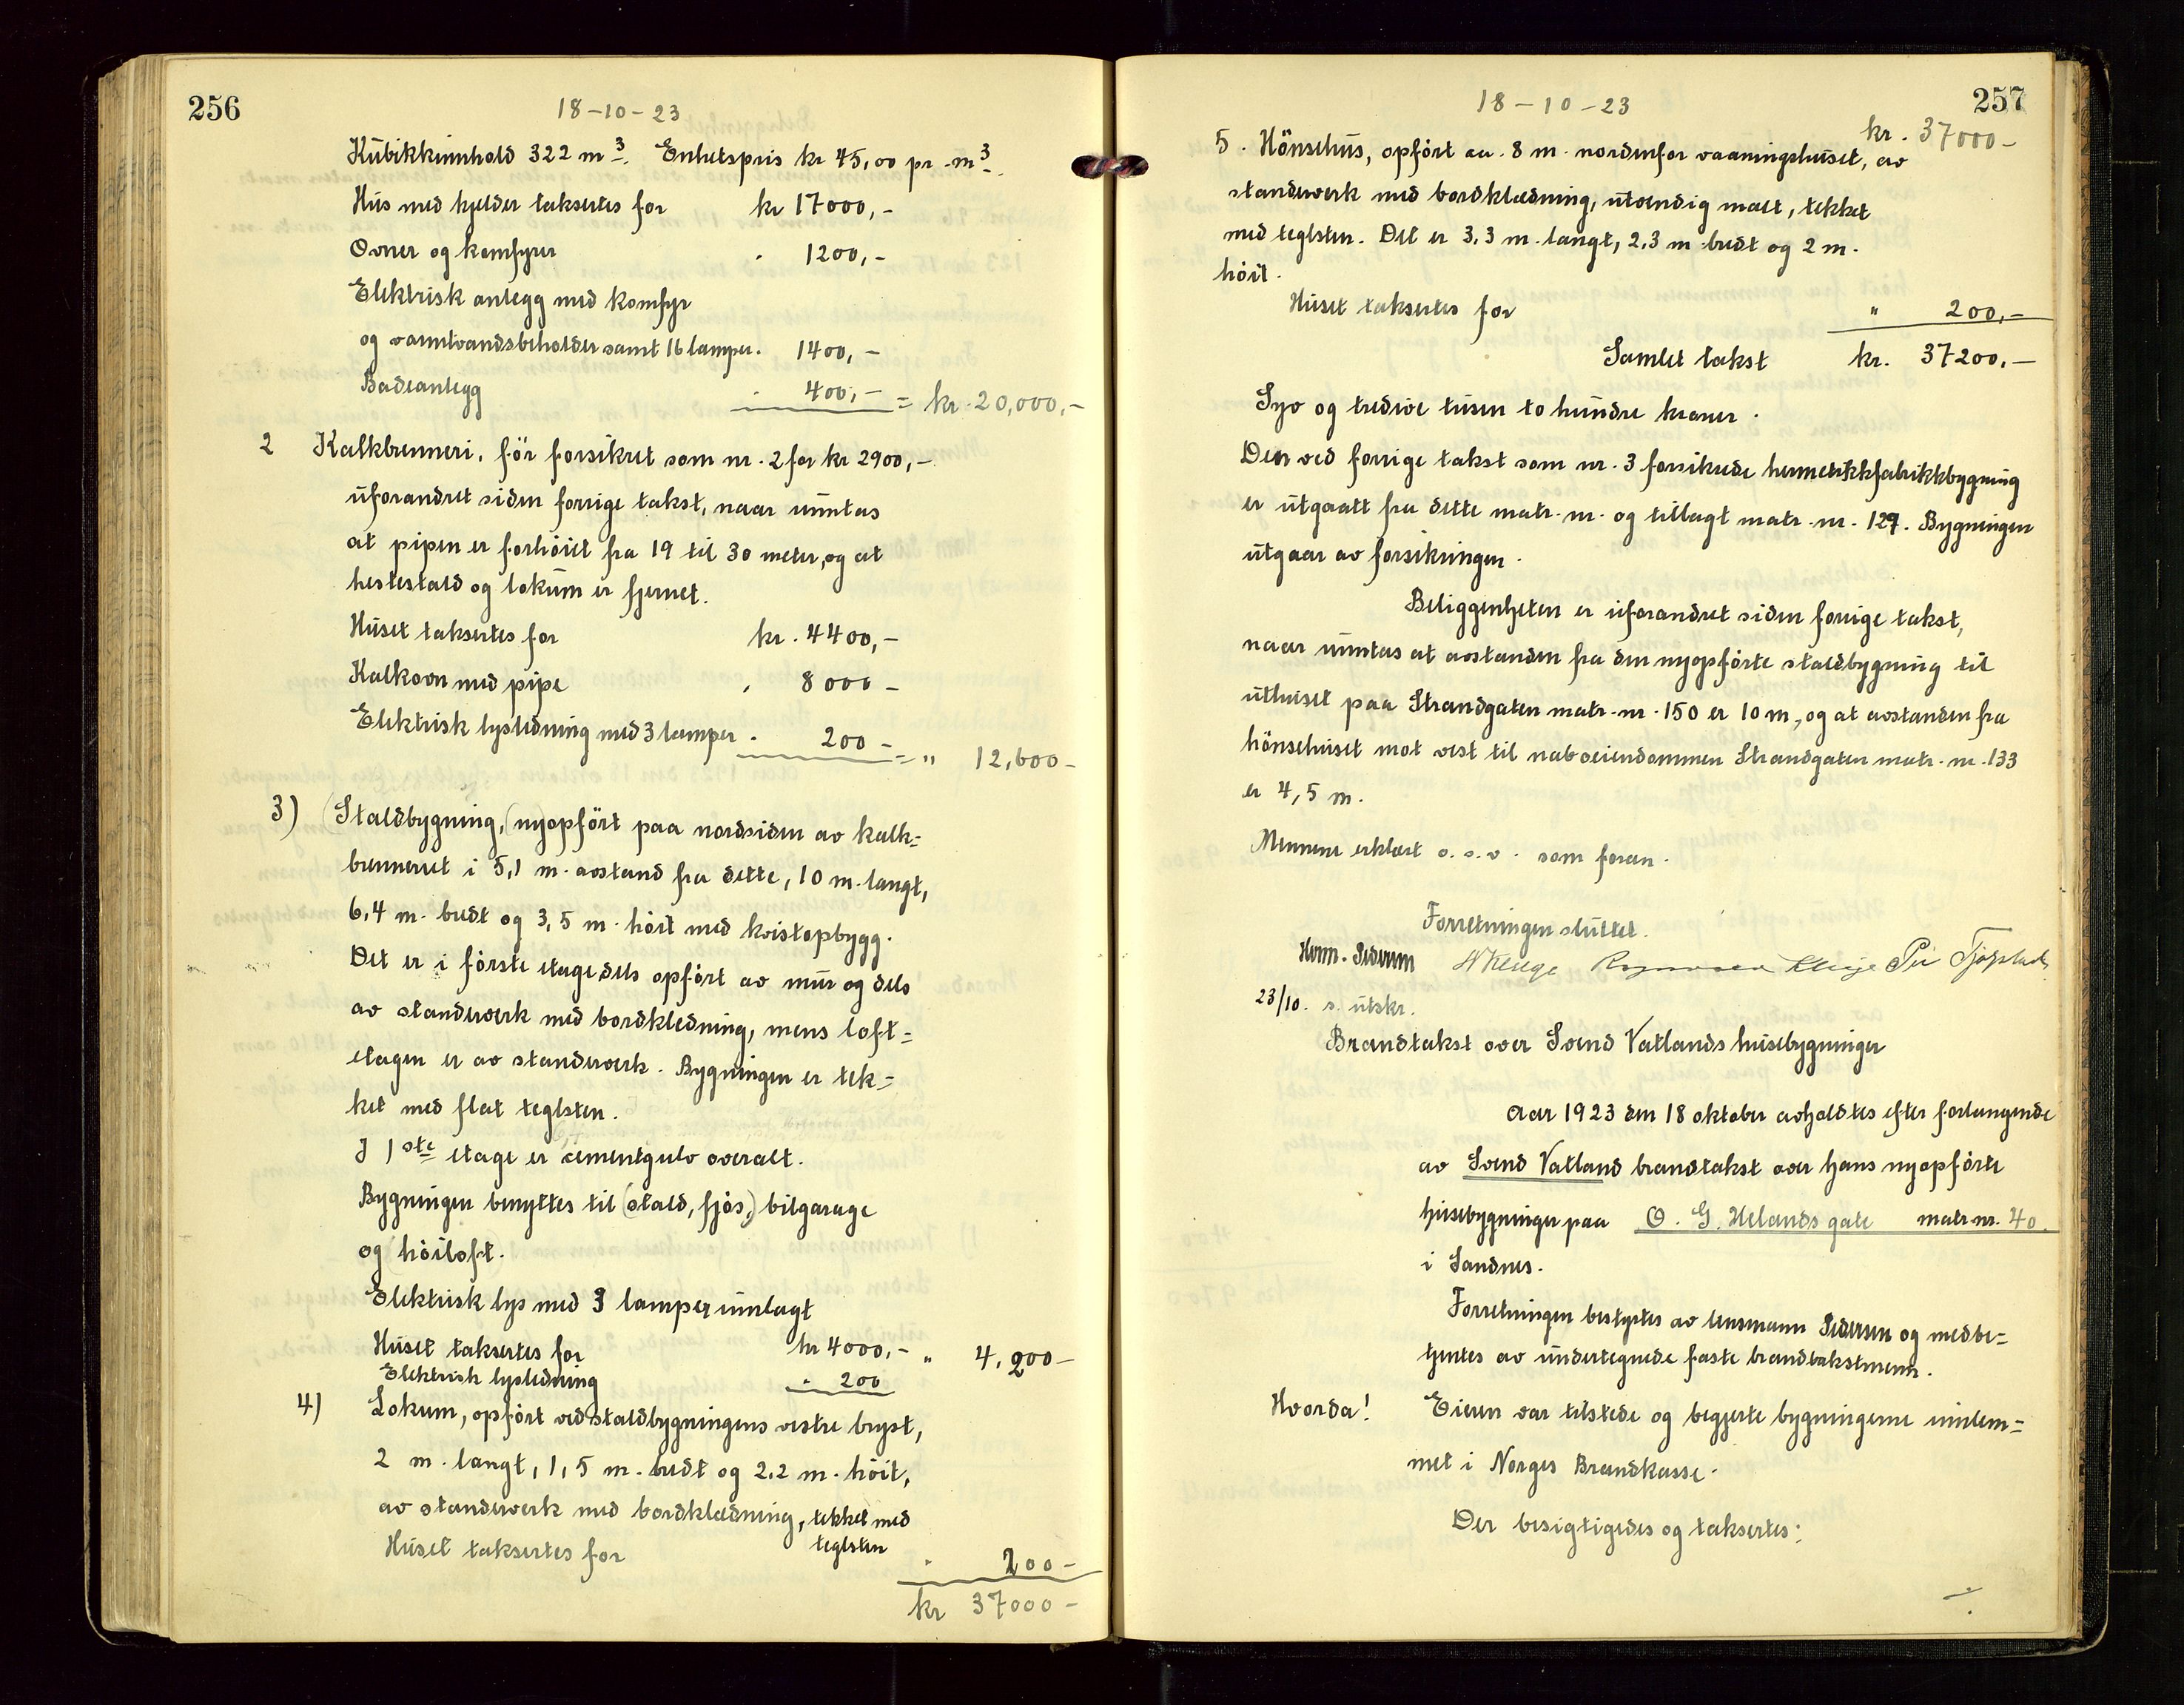 256
18-10-23
Kubikkinnhold 322 m³. Enhetspris kr 45,00 pr. m³.
Hus med kjelder taksertes for kr 17000,-
Ovner og komfyrer . 1200,-
Elektrisk anlegg med komfyr
og varmtvandsbeholder samt 16 lamper . 1400,-
Badeanlegg . 400,- = kr. 20,000,-
2 Kalkbrenneri, før forsikret som nr. 2 for kr 2900,-
uforandret siden forrige takst, naar unntas
at pipen er forhöiet fra 19 til 30 meter, og at
hestestald og lokum er fjernet.
Huset taksertes for kr. 4400,-
Kalkovn med pipe . 8000 -
Elektrisk lysledning med 3 lamper . 200 - = " 12,600 -
3) (Staldbygning, (nyopfört paa nordsiden av kalk=
brenneriet i 5,1 m. avstand fra dette, 10 m. langt,
6,4 m. bredt og 3,5 m. höit med kvistopbygg.
Det er i förste etage dels opfört av mur og dels
av standerverk med bordkledning, mens loft=
etagen er av standerverk. Bygningen er tek=
ket med flat teglsten.
I 1ste etage er cementgulv overalt.
Bygningen benyttes til (stald, fjös,) bilgarage
og höiloft.
Elektrisk lys med 3 lamper innlagt
Huset taksertes for kr 4000,- " 4,200 -
Elektrisk lysledning . 200
4) Lokum, opfört ved staldbygningens vestre bryst,
2 m. langt, 1,5 m. bredt og 2,2 m. höit,
av standerverk med bordklædning, tekket med
teglsten
Huset taksertes for . 200 -
kr 37000 -
257
18-10-23
kr. 37000 -
5. Hönsehus, opfört ca. 8 m. nordenfor vaaningshuset, av
standerverk med bordklædning, utvendig malt, tekket
med teglsten. Det er 3,3 m. langt, 2,3 m. bredt og 2 m.
höit.
Huset taksertes for " 200,-
Samlet takst kr. 37200,-
Syv og tredive tusen to hundre kroner.
Den ved forrige takst som nr. 3 forsikrede hermetikkfabrikkbygning
er utgaatt fra dette matr. nr. og tillagt matr. nr. 127. Bygningen
utgaar av forsikringen.
Beliggenheten er uforandret siden forrige takst,
naar unntas at avstanden fra den nyopförte staldbygning til
uthuset paa Strandgaten matr. nr. 150 er 10 m., og at avstanden fra
hönsehuset mot vest til naboeiendommen Strandgaten matr. nr. 133
er 4,5 m.
Mennene erklært o.s.v. som foran.
Forretningen sluttet.
Herm. Pedersen
23/10. s. utskr.
Brandtakst over Svend Vatlands husebygninger
Aar 1923 den 18 oktober avholdtes efter forlangende
av Svend Vatland brandtakst over hans nyopförte
husebygninger paa O. G. Uelands gate matr. nr. 40.
i Sandnes.
Forretningen bestyrtes av lensmann Pedersen og medbe=
tjentes av undertegnede faste brandtakstmenn.
Hvorda! Eieren var tilstede og begjerte bygningerne innlem=
met i Norges Brandkasse.
Der besigtigedes og taksertes: